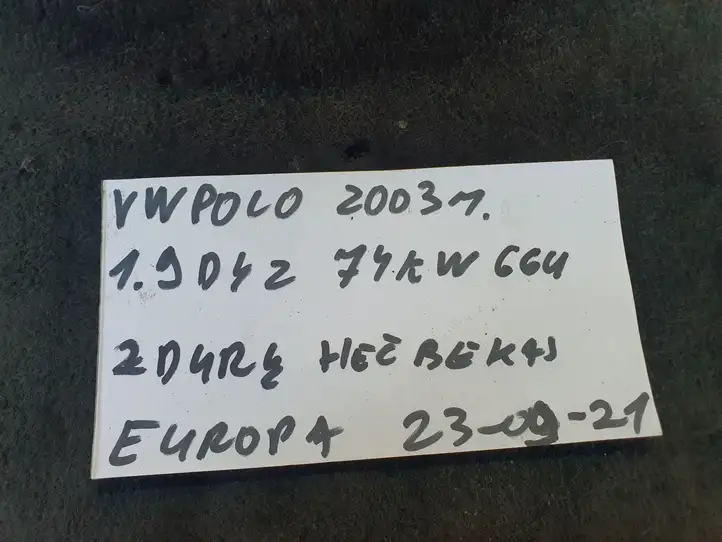 VW POLO 2003 M.
1.9 DYZ 74KW 6GU
2 DURŲ HEČBEKAS
EUROPA 23-09-21